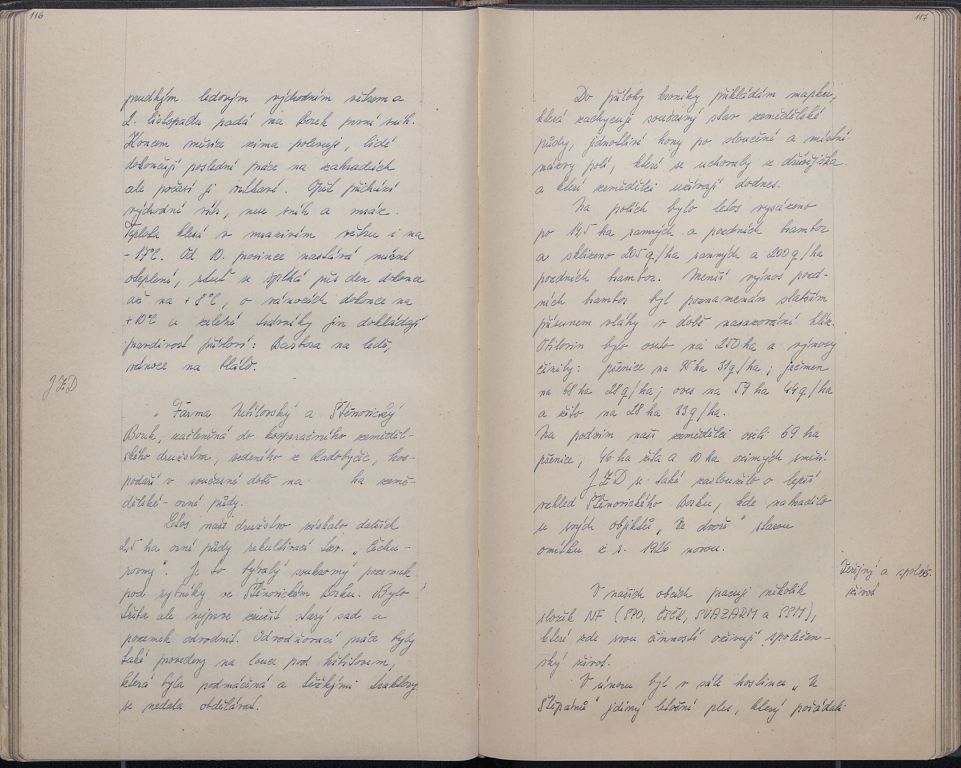 116
prudkým ledovým východním větrem a
2. listopadu padá na Borek první sníh.
Koncem měsíce zima polevuje, lidé
dokončují poslední práce na zahradách
ale počasí je vrtkavé. Opět přichází
východní vítr, nese sníh a mráz.
Teplota klesá v mrazivém větru i na
-17°C. Od 10. prosince nastává mírné
oteplení, rtuť se vyšplhá přes den dokonce
až na +8°C, o vánocích dokonce na
+10°C a zaleté tudrníky jen dokládají
pravdivost přísloví: Barbora na ledě,
vánoce na blátě.
JZD
" Farma Netilovský a Štěnovický
Borek, začleněná do kooperačního zeměděl-
ského družstva, vedeného z Radobyčic, hos-
podaří v současné době na ha země-
dělské - orné půdy.
Letos naše družstvo získalo dalších
2,5 ha orné půdy rekultivací tzv. "Čechu-
rovny". Je to bývalý soukromý pozemek
pod rybníky ve Štěnovickém Borku. Bylo
třeba ale nejprve zničit starý sad a
pozemek odvodnit. Odvodňovací práce byly
také provedeny na louce pod hřbitovem,
která byla podmáčená a těžkými traktory
se nedala obdělávat.
117
Do přílohy kroniky přikládám mapku,
která zachycuje současný stav zemědělské
půdy, jednotlivé hony po sloučení a místní
názvy polí, které se uchovaly z dřívějška
a které zemědělci užívají dodnes.
Na polích bylo letos vysázeno
po 12,5 ha ranných a pozdních brambor
a sklizeno 205 q/ha ranných a 200 q/ha
pozdních brambor. Menší výnos pozd-
ních brambor byl poznamenán slabším
přísunem vláhy v době nasazování hlíz.
Obilovin bylo oseto na 250 ha a výnosy
činily: pšenice na 75 ha 31 q/ha; ječmen
na 68 ha 28 q/ha; oves na 59 ha 44 q/ha
a žito na 28 ha 33 q/ha.
Na podzim naši zemědělci oseli 69 ha
pšenice, 46 ha žita a 10 ha ozimých směsí.
JZD se také zasloužilo o lepší
vzhled Štěnovického Borku, kde nahradilo
u svých objektů "Ve dvoře" starou
omítku z r. 1926 novou.
Veřejný a společ.
život
V našich obcích pracují několik
složek NF (SPO, ČSČK, SVAZARM a SSM),
které zde svou činností oživují společen-
ský život.
V únoru byl v sále hostince "U
Štěpánů" jediný letošní ples, který pořádali